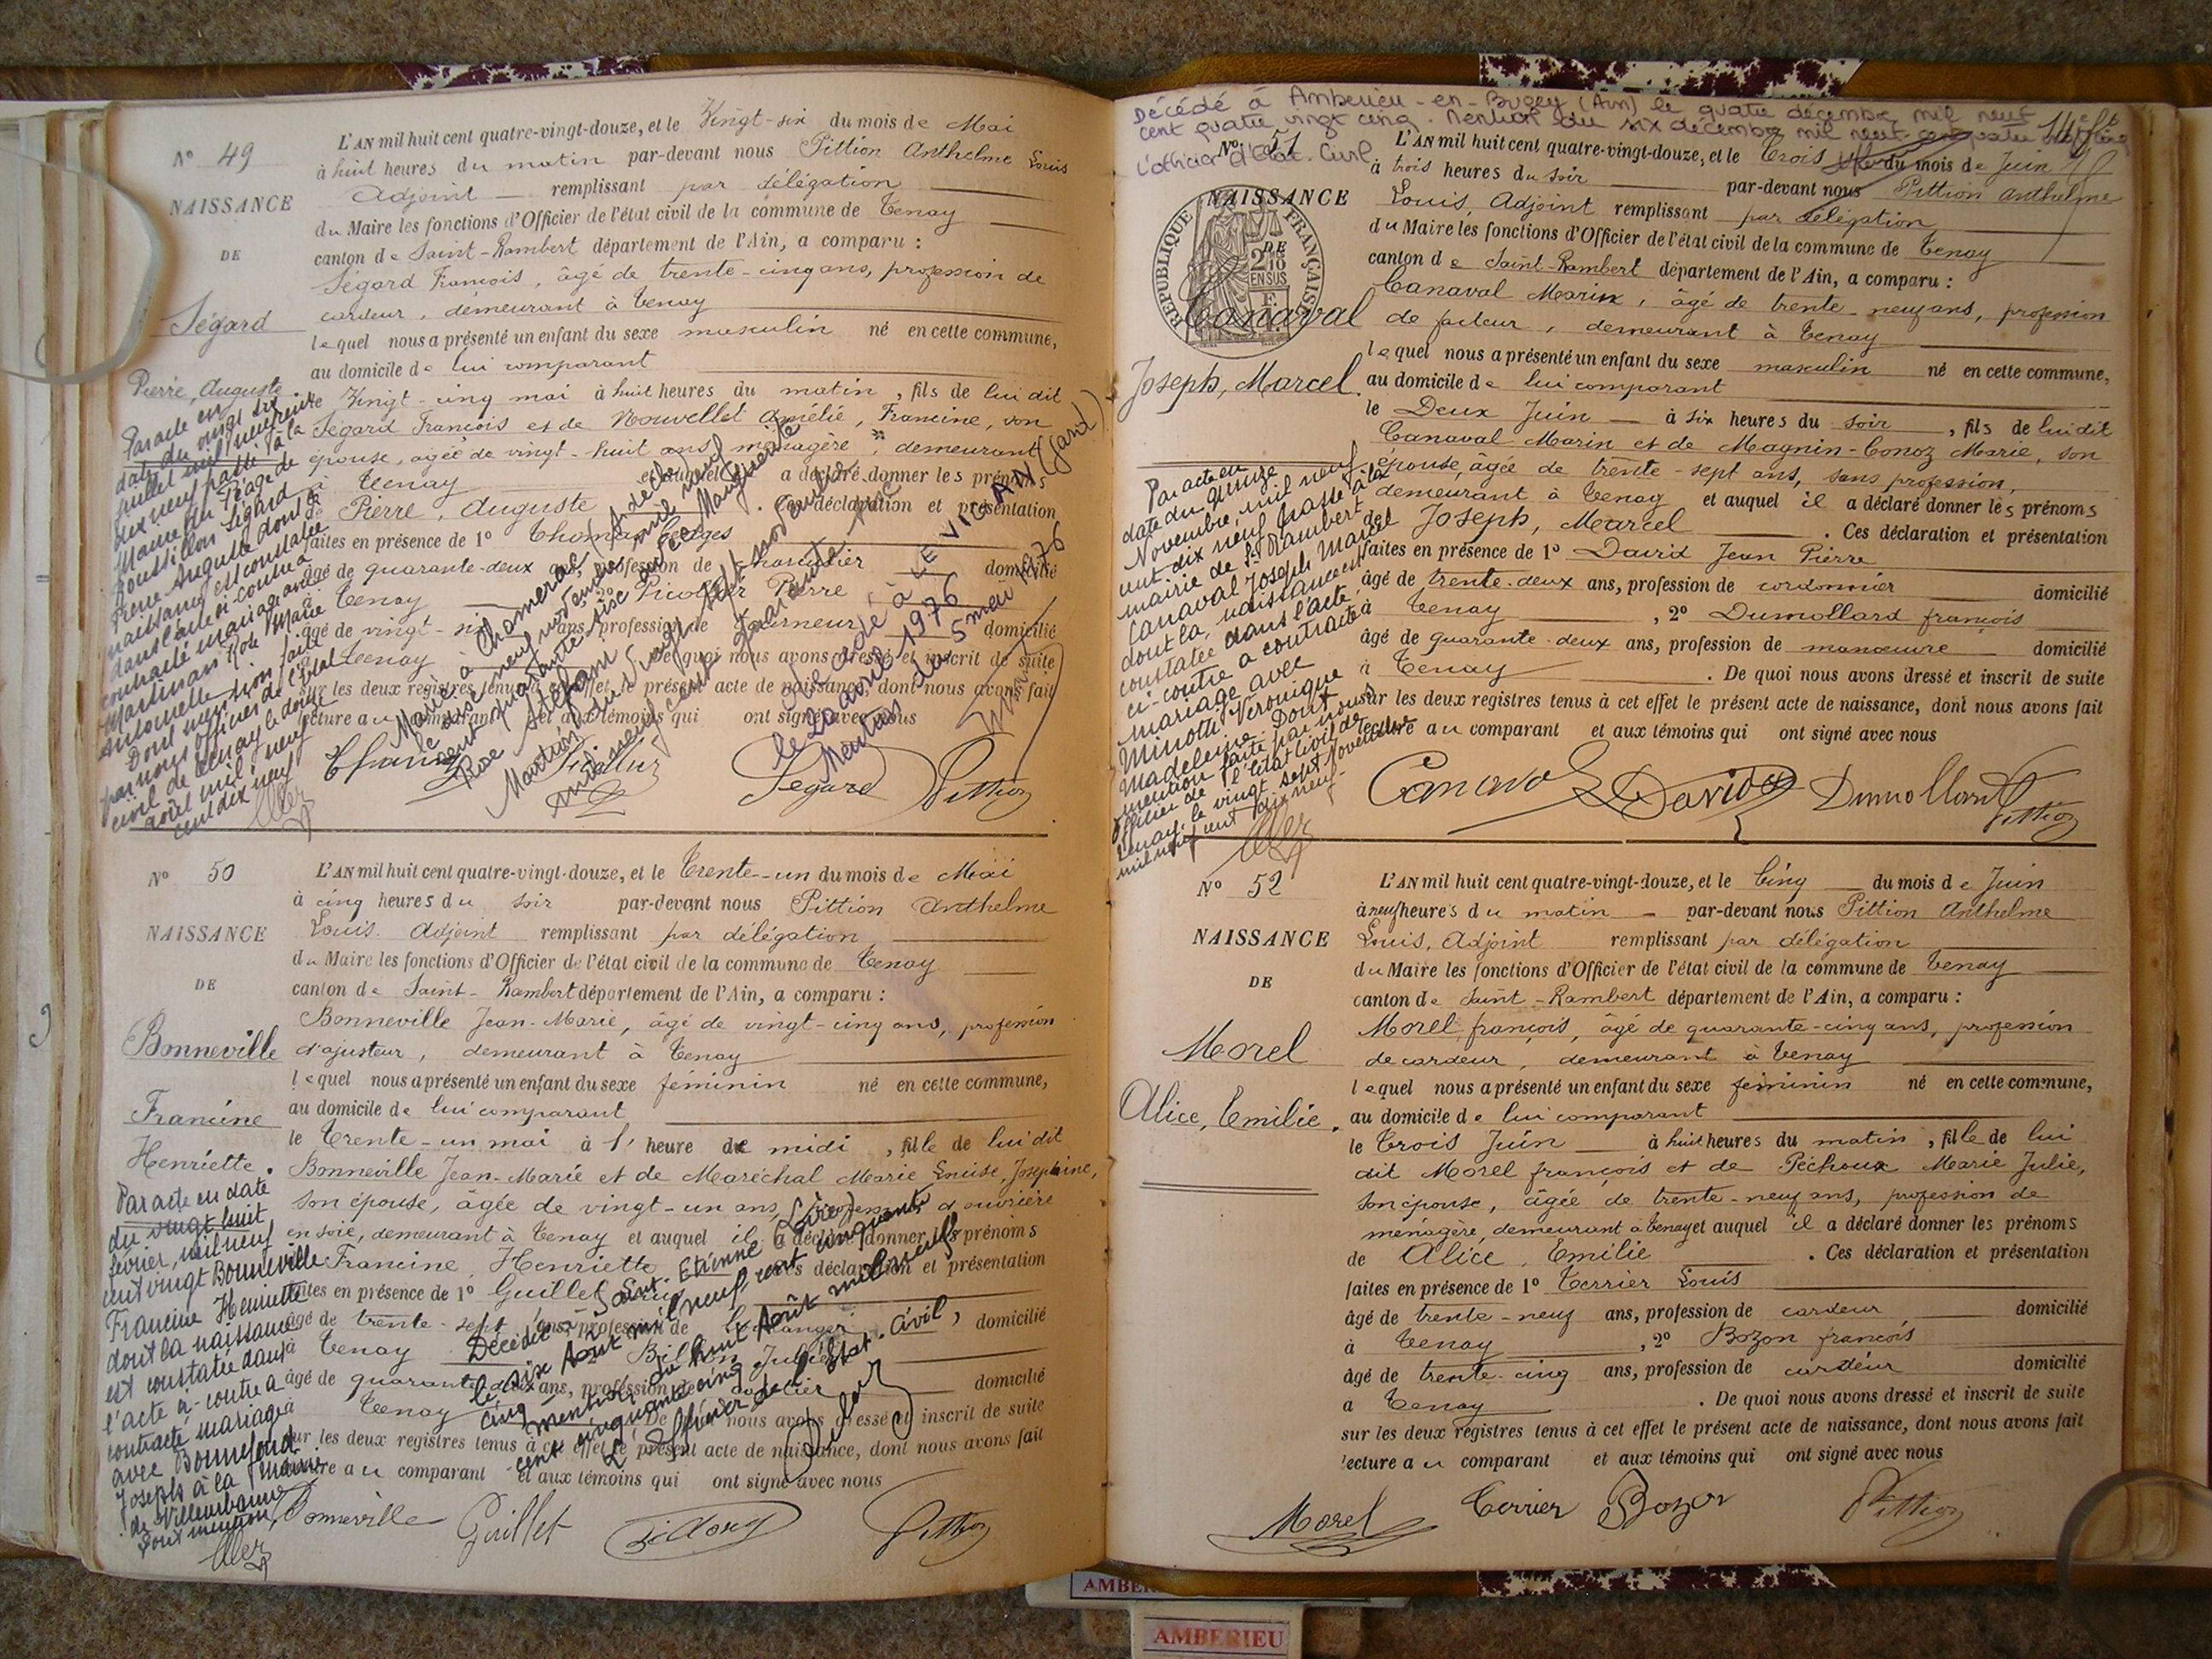 N° 49
NAISSANCE
DE
Ségard
Pierre, Auguste
L'AN mil huit cent quatre-vingt-douze, et le Vingt-six du mois de Mai
à huit heures du matin par-devant nous Pittion Anthelme Louis
Adjoint remplissant par délégation
du Maire les fonctions d'Officier de l'état civil de la commune de Tenay
canton de Saint-Rambert département de l'Ain, a comparu :
Ségard François, âgé de trente-cinq ans, profession de
cardeur, demeurant à Tenay
lequel nous a présenté un enfant du sexe masculin né en cette commune,
au domicile de lui comparant
le Vingt-cinq mai à huit heures du matin, fils de lui dit
Ségard François et de Nouvellet Amélie, Francine, son
épouse, agée de vingt-huit ans, ménagère, demeurant
à Tenay et auquel a déclaré donner les prénoms
de Pierre, Auguste . Ces déclaration et présentation
faites en présence de 1° Thomas
âgé de quarante-deux ans, profession de domicilié
à Tenay 2° Pierre
âgé de vingt- ans, profession de domicilié
à Tenay De quoi nous avons dressé et inscrit de suite
sur les deux registres tenus à cet effet le présent acte de naissance, dont nous avons fait
lecture au comparant et aux témoins qui ont signé avec nous
Segard Pittion
Par acte en
date du vingt six
juillet mil neuf cent
dix neuf passé à la
Mairie du Péage de
Roussillon Ségard
Pierre-Auguste dont la
naissance est constatée
dans l'acte ci-contre a
contracté mariage avec
Martinan Rose Marie
Antoinette
Dont mention faite
par nous officier de l'état
civil de Tenay le douze
août mil neuf
cent dix neuf
Marié à Chomérac (Ardèche)
neuf novembre mil neuf
cent quarante six avec
Rose Stéphanie Marguerite
Mention
mil neuf cent quarante
décédé à LE VIGAN (Gard)
le 22 août 1976
Mention du 5 1976
N° 50
NAISSANCE
DE
Bonneville
Francine
Henriette.
L'AN mil huit cent quatre-vingt-douze, et le Trente-un du mois de Mai
à cinq heures du soir par-devant nous Pittion Anthelme
Louis. Adjoint remplissant par délégation
du Maire les fonctions d'Officier de l'état civil de la commune de Tenay
canton de Saint-Rambert département de l'Ain, a comparu :
Bonneville Jean-Marie, âgé de vingt-cinq ans, profession
d'ajusteur, demeurant à Tenay
lequel nous a présenté un enfant du sexe féminin né en cette commune,
au domicile de lui comparant
le Trente-un mai à 1' heure de midi, fille de lui dit
Bonneville Jean-Marie et de Maréchal Marie Louise, Joséphine,
son épouse, âgée de vingt-un ans, profession d'ouvrière
en soie, demeurant à Tenay et auquel il a déclaré donner les prénoms
de Francine, Henriette . Ces déclaration et présentation
faites en présence de 1° Guillet Louis
âgé de trente-sept ans, profession de boulanger domicilié
à Tenay 2° Billon Julien
âgé de quarante-deux ans, profession de domicilié
à Tenay De quoi nous avons dressé et inscrit de suite
sur les deux registres tenus à cet effet le présent acte de naissance, dont nous avons fait
lecture au comparant et aux témoins qui ont signé avec nous
Bonneville Guillet Billon Pittion
Par acte en date
du vingt huit
février, mil neuf
cent vingt Bonneville
Francine Henriette
dont la naissance
est constatée dans
l'acte ci-contre a
contracté mariage
avec Bonnefond
Joseph à la mairie
de Villeurbanne
Dont mention,
Décédée à Saint-Etienne (Loire)
le six Août mil neuf cent cinquante
cinq mention du huit Août mil neuf
cent cinquante cinq
L'Officier de l'état-civil,
Décédé à Amberieu-en-Bugey (Ain) le quatre décembre mil neuf
cent quatre vingt cinq. Mention du six décembre mil neuf cent quatre vingt cinq
L'officier d'Etat Civil
N° 51
NAISSANCE
DE
REPUBLIQUE FRANÇAISE
2/10 EN SUS
Canaval
Joseph, Marcel.
L'AN mil huit cent quatre-vingt-douze, et le Trois du mois de Juin
à trois heures du soir par-devant nous Pittion Anthelme
Louis, Adjoint remplissant par délégation
du Maire les fonctions d'Officier de l'état civil de la commune de Tenay
canton de Saint-Rambert département de l'Ain, a comparu :
Canaval Marin, âgé de trente-neuf ans, profession
de facteur, demeurant à Tenay
lequel nous a présenté un enfant du sexe masculin né en cette commune,
au domicile de lui comparant
le Deux Juin à six heures du soir, fils de lui dit
Canaval Marin et de Magnin-Conoz Marie, son
épouse, âgée de trente-sept ans, sans profession,
demeurant à Tenay et auquel il a déclaré donner les prénoms
de Joseph, Marcel . Ces déclaration et présentation
faites en présence de 1° David Jean Pierre
âgé de trente-deux ans, profession de cordonnier domicilié
à Tenay, 2° Dumollard françois
âgé de quarante-deux ans, profession de manœuvre domicilié
à Tenay . De quoi nous avons dressé et inscrit de suite
sur les deux registres tenus à cet effet le présent acte de naissance, dont nous avons fait
lecture au comparant et aux témoins qui ont signé avec nous
Canaval David Dumollard Pittion
Par acte en
date du quinze
Novembre, mil neuf
cent dix neuf passé à la
mairie de St Rambert
Canaval Joseph Marcel
dont la naissance est
constatée dans l'acte
ci-contre a contracté
mariage avec
Minotti Véronique
Madeleine. Dont
mention faite par nous
officier de l'état civil de
Tenay, le vingt sept novembre
mil neuf cent dix neuf
N° 52
NAISSANCE
DE
Morel
Alice, Emilie.
L'AN mil huit cent quatre-vingt-douze, et le Cinq du mois de Juin
à neuf heures du matin par-devant nous Pittion Anthelme
Louis, Adjoint remplissant par délégation
du Maire les fonctions d'Officier de l'état civil de la commune de Tenay
canton de Saint-Rambert département de l'Ain, a comparu :
Morel françois, âgé de quarante-cinq ans, profession
de cardeur, demeurant à Tenay
lequel nous a présenté un enfant du sexe féminin né en cette commune,
au domicile de lui comparant
le Trois Juin à huit heures du matin, fille de lui
dit Morel françois et de Péchoux Marie Julie,
son épouse, âgée de trente-neuf ans, profession de
ménagère, demeurant à Tenay et auquel il a déclaré donner les prénoms
de Alice, Emilie . Ces déclaration et présentation
faites en présence de 1° Terrier Louis
âgé de trente-neuf ans, profession de cardeur domicilié
à Tenay, 2° Bozon francois
âgé de trente-cinq ans, profession de cardeur domicilié
à Tenay . De quoi nous avons dressé et inscrit de suite
sur les deux registres tenus à cet effet le présent acte de naissance, dont nous avons fait
lecture au comparant et aux témoins qui ont signé avec nous
Morel Terrier Bozon Pittion
AMBERIEU